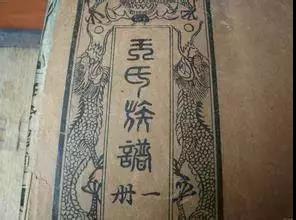 王氏族譜
一册